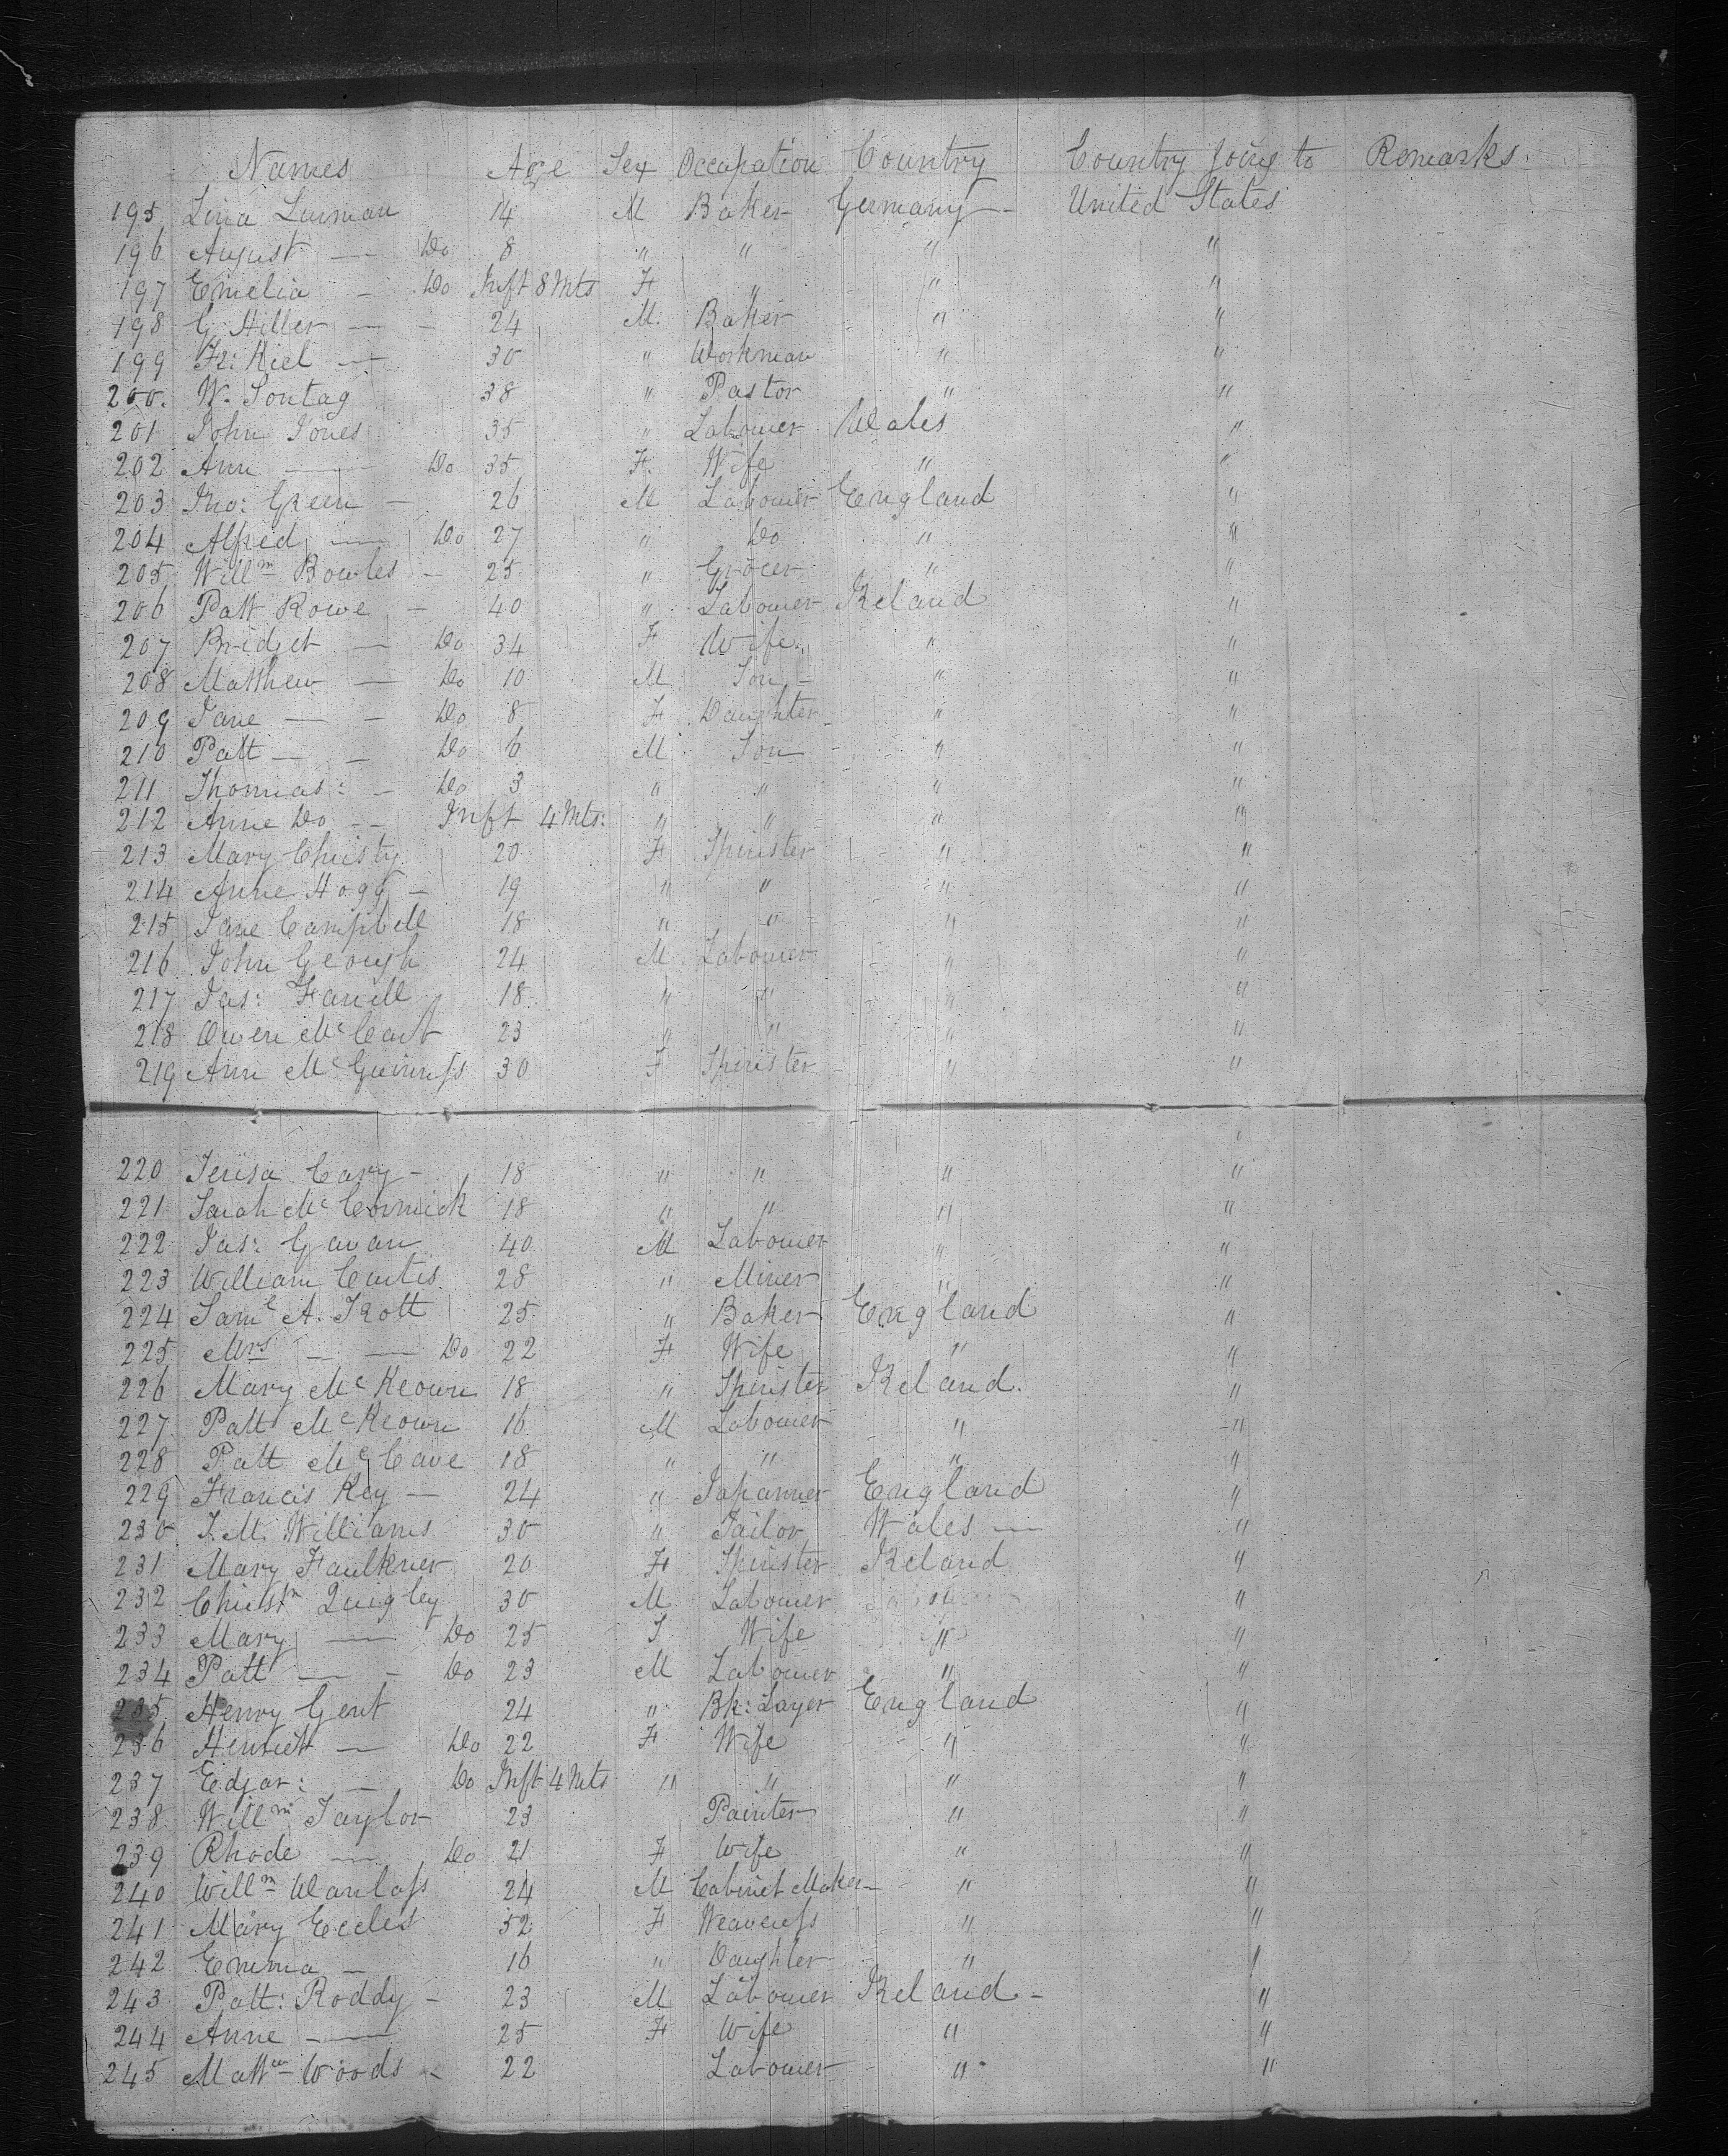 Names Age Sex Occupation Country Country going to Remarks
195 Lina Lurman 14 M Baker Germany — United States
196 August — Do 8 " " " "
197 Emelia — Do Inft 8 Mts F " " "
198 G. Hiller — - 24 M. Baker " "
199 Fr: Kiel — 30 " Workman " "
200. W. Sontag 38 " Pastor " "
201 John Jones 35 " Labourer Wales "
202 Ann — Do 35 F. Wife " "
203 Jno: Green - 26 M Labourer England "
204 Alfred — Do 27 " Do " "
205 Willm Bowles - 25 " Grocer " "
206 Patt Rowe - 40 " Labourer Ireland "
207 Bridget — Do 34 F Wife. " "
208 Matthew — Do 10 M Son - " "
209 Jane — - Do 8 F Daughter " "
210 Patt — - Do 6 M Son " "
211 Thomas: - Do 3 " " " "
212 Anne Do - - Inft 4 Mts: " " " "
213 Mary Christy 20 F Spinster " "
214 Anne Hogg - 19 " " " "
215 Jane Campbell 18 " " " "
216 John Geough 24 M Labourer " "
217 Jas: Farrell 18 " " " "
218 Owen McCart 23 " " " "
219 Ann McGuinness 30 F Spinster " "
220 Terisa Cary - 18 " " " "
221 Sarah McCormick 18 " " " "
222 Jas: Gavan 40 M Labourer " "
223 William Curtis 28 " Miner " "
224 Saml A. Trott 25 " Baker England "
225 Mrs - — Do 22 F Wife " "
226 Mary McKeown 18 " Spinster Ireland. "
227 Patt McKeown 16 M Labourer " "
228 Patt McCave 18 " " " "
229 Francis Key — 24 " Japanner England "
230 J. M. Williams 30 " Tailor Wales — "
231 Mary Faulkner 20 F Spinster Ireland "
232 Christn Quigley 30 M Labourer "
233 Mary — Do 25 F Wife " "
234 Patt — - Do 23 M Labourer " "
235 Henry Gent 24 " Bk: Layer England "
236 Henriett — Do 22 F Wife " "
237 Edgar: — Do Inft 4 Mts " " " "
238 Willm Taylor 23 Painter " "
239 Rhode — Do 21 F Wife " "
240 Willm Wanlass 24 M Cabinet Maker — " "
241 Mary Eccles 52 F Weaveress " "
242 Emma — 16 " Daughter " "
243 Patt: Roddy - 23 M Labourer Ireland - "
244 Anne - — 25 F Wife " "
245 Mattw Woods - 22 Labourer " "